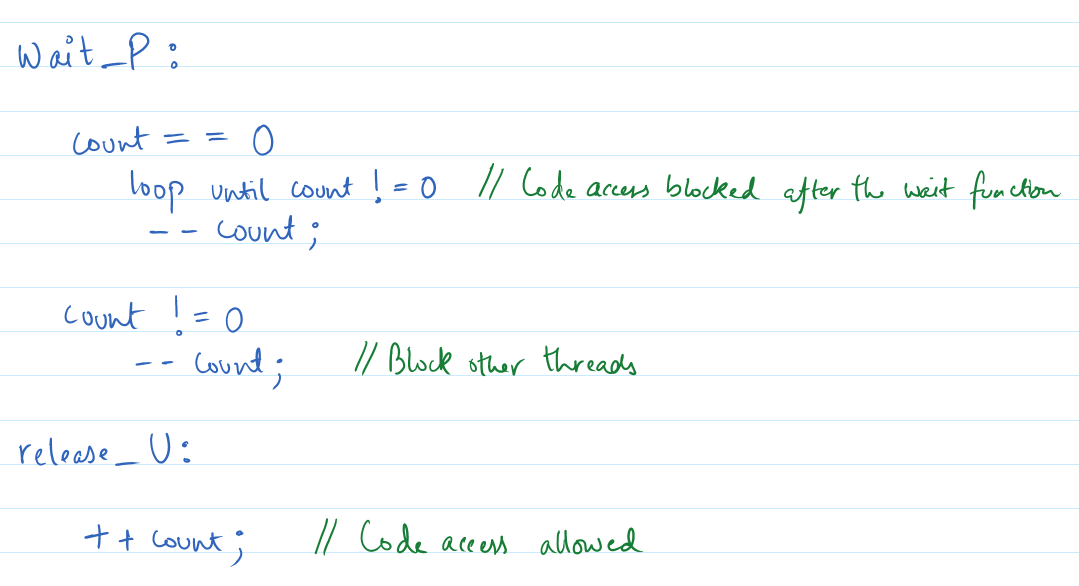 Wait_P:
count == 0
loop until count != 0 // Code access blocked after the wait function
-- count;
count != 0
-- count; // Block other threads
release_U:
++ count; // Code access allowed